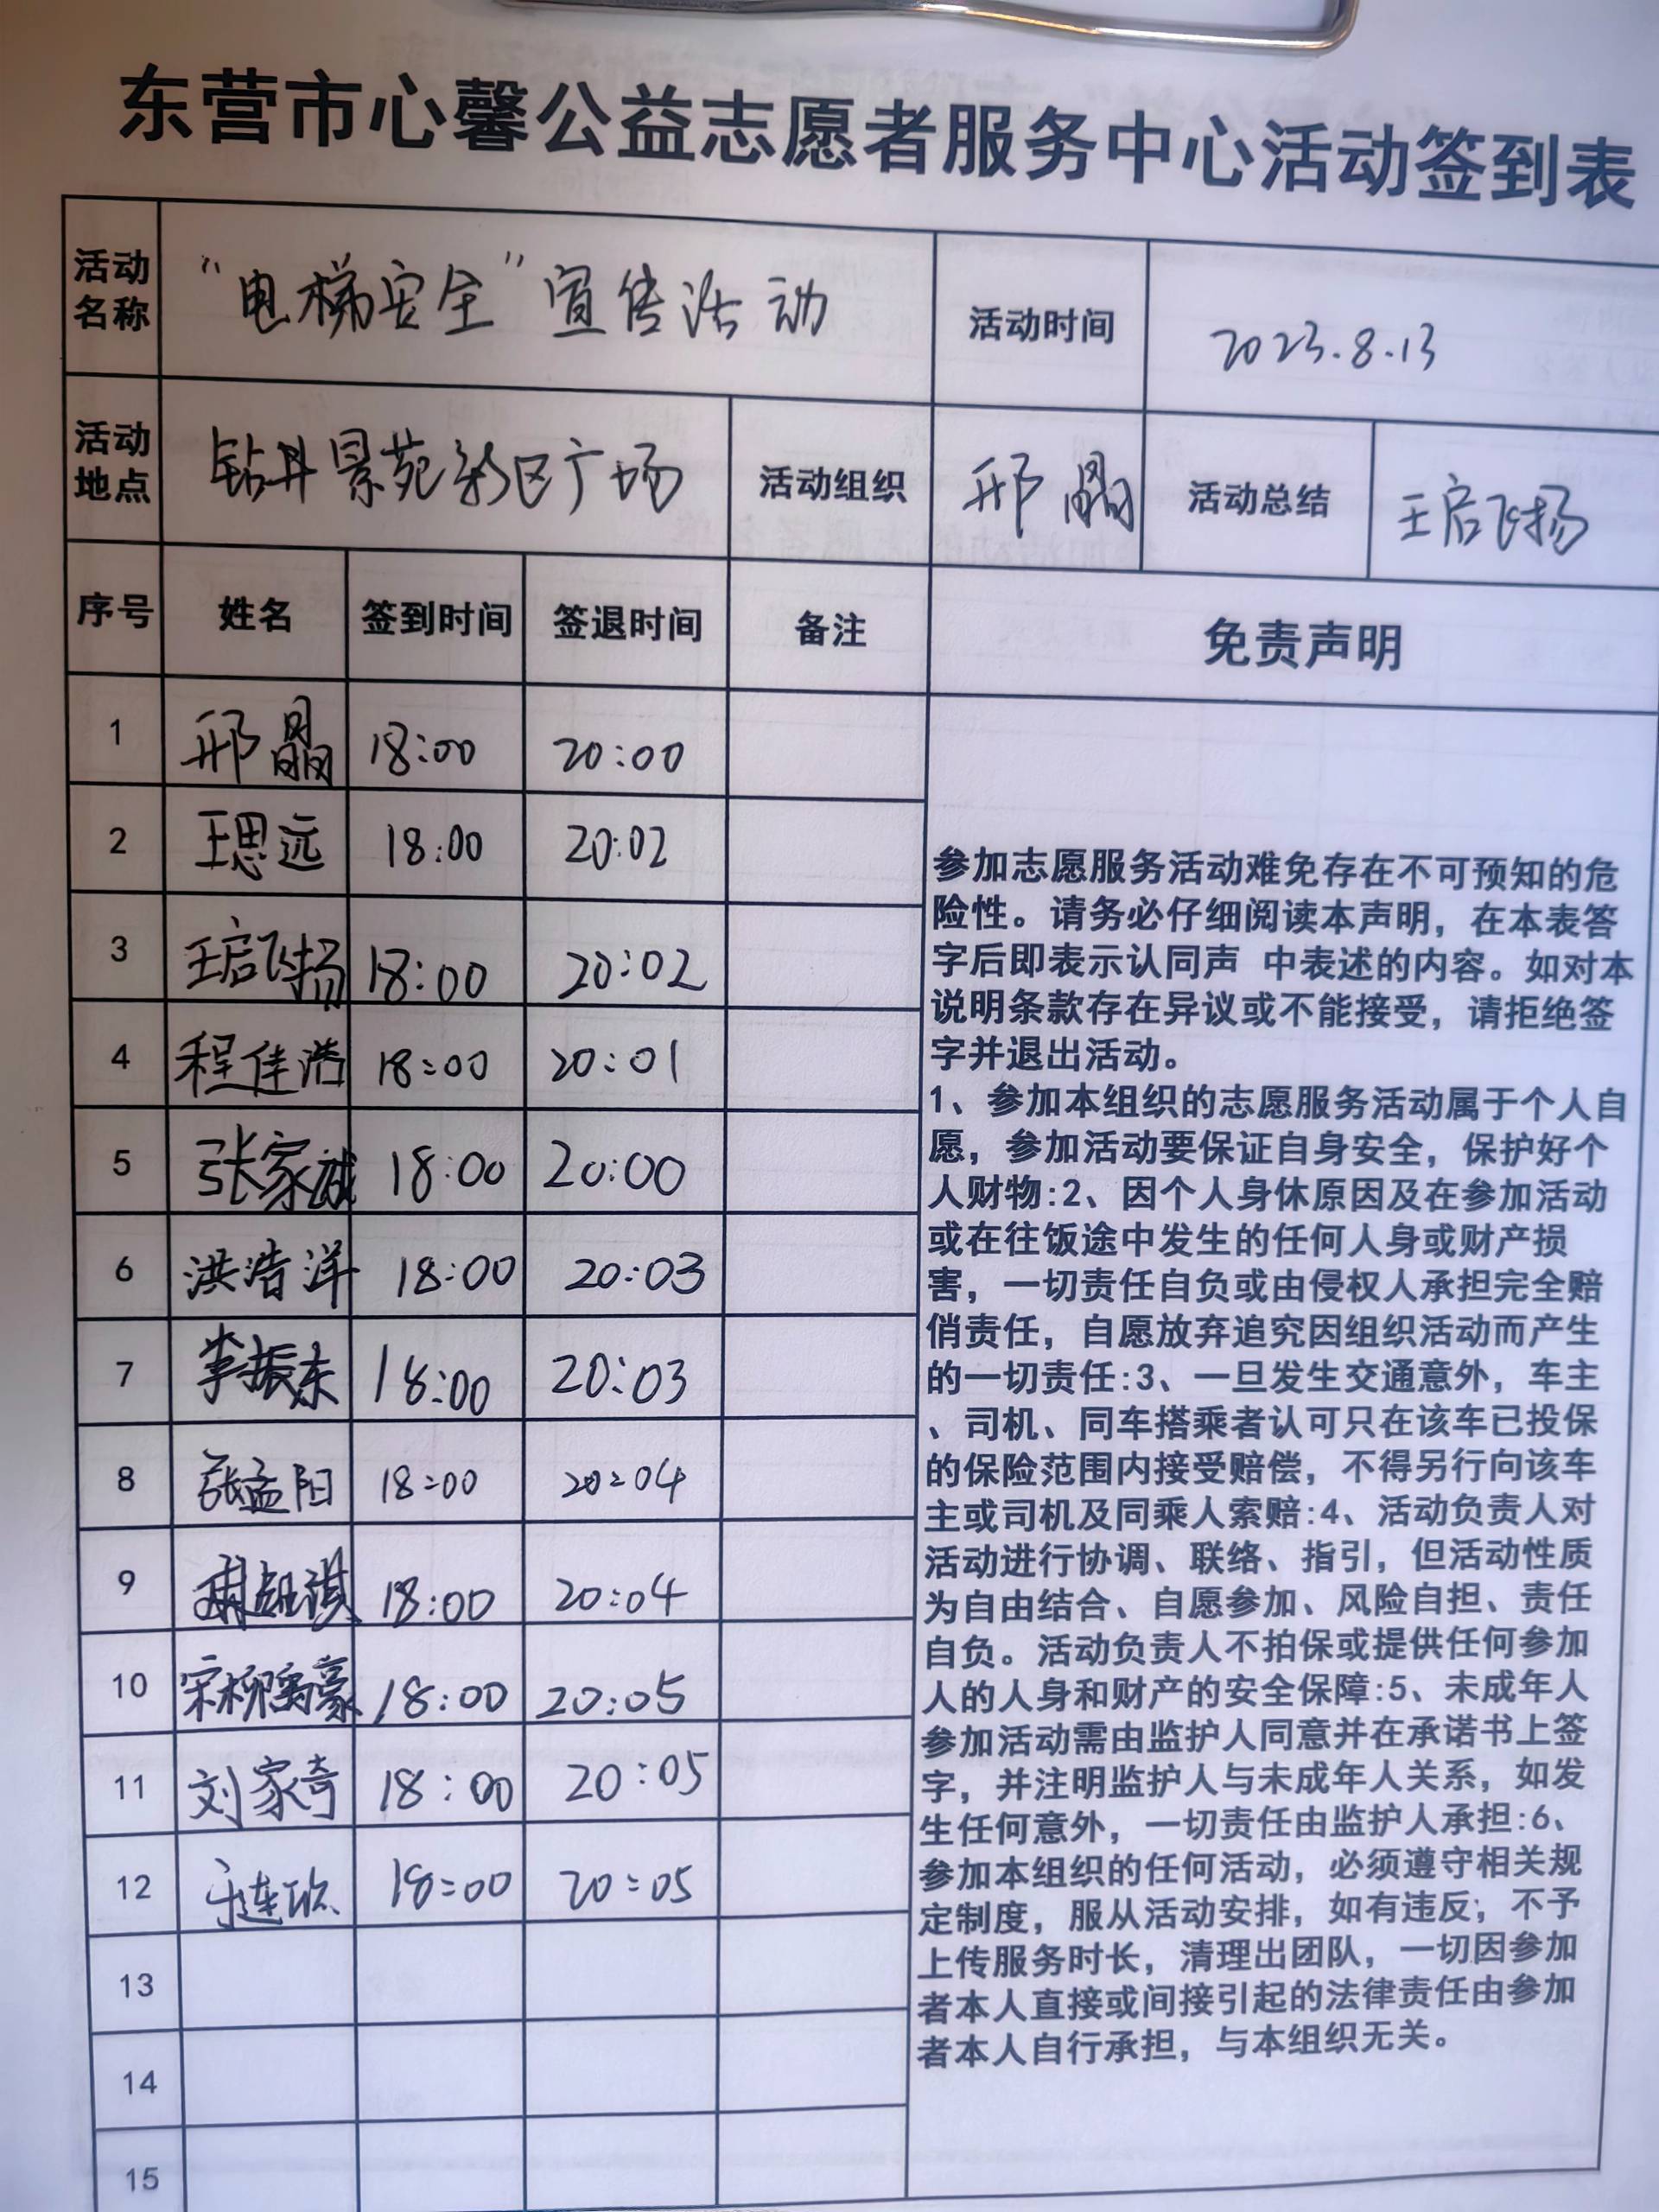 东营市心馨公益志愿者服务中心活动签到表
活动名称 “电梯安全”宣传活动 活动时间 2023.8.13
活动地点 钻井景苑新区广场 活动组织 邢晶 活动总结 王启飞扬
序号 姓名 签到时间 签退时间 备注 免责声明
1 邢晶 18:00 20:00
2 王思远 18:00 20:02
3 王启飞扬 18:00 20:02
4 程佳浩 18:00 20:01
5 张家诚 18:00 20:00
6 洪浩洋 18:00 20:03
7 李振东 18:00 20:03
8 张孟阳 18:00 20:04
9 18:00 20:04
10 宋柳寓豪 18:00 20:05
11 刘家奇 18:00 20:05
12 18:00 20:05
13
14
15
参加志愿服务活动难免存在不可预知的危
险性。请务必仔细阅读本声明，在本表答
字后即表示认同声 中表述的内容。如对本
说明条款存在异议或不能接受，请拒绝签
字并退出活动。
1、参加本组织的志愿服务活动属于个人自
愿，参加活动要保证自身安全，保护好个
人财物:2、因个人身休原因及在参加活动
或在往饭途中发生的任何人身或财产损
害，一切责任自负或由侵权人承担完全赔
俏责任，自愿放弃追究因组织活动而产生
的一切责任:3、一旦发生交通意外，车主
、司机、同车搭乘者认可只在该车已投保
的保险范围内接受赔偿，不得另行向该车
主或司机及同乘人索赔:4、活动负责人对
活动进行协调、联络、指引，但活动性质
为自由结合、自愿参加、风险自担、责任
自负。活动负责人不拍保或提供任何参加
人的人身和财产的安全保障:5、未成年人
参加活动需由监护人同意并在承诺书上签
字，并注明监护人与未成年人关系，如发
生任何意外，一切责任由监护人承担:6、
参加本组织的任何活动，必须遵守相关规
定制度，服从活动安排，如有违反；不予
上传服务时长，清理出团队，一切因参加
者本人直接或间接引起的法律责任由参加
者本人自行承担，与本组织无关。